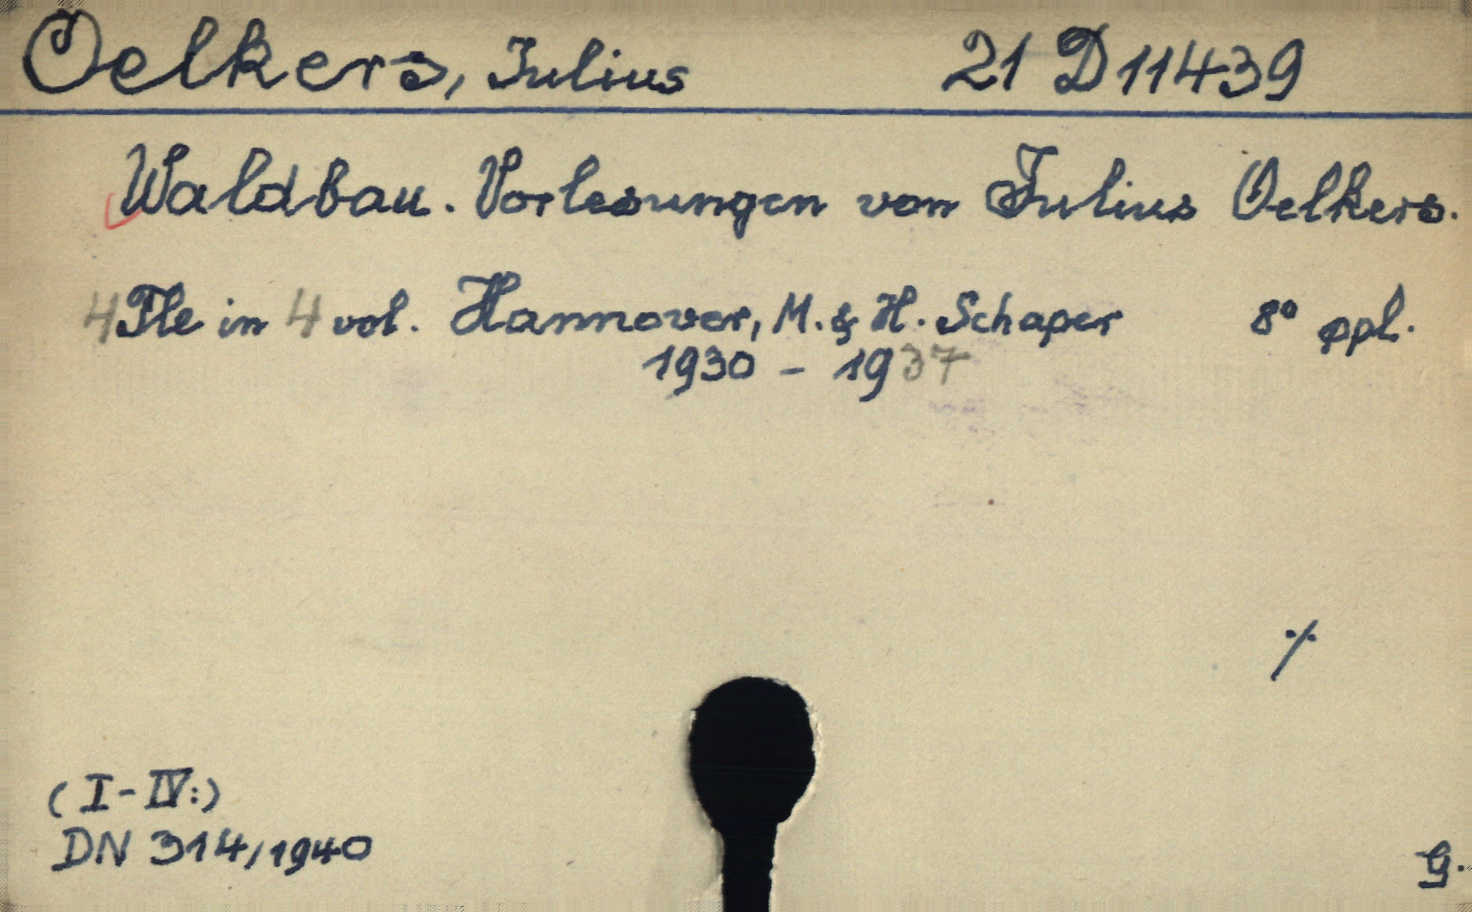 Oelkers, Julius 21 D 11439
Waldbau. Vorlesungen von Julius Oelkers.
4 Tle in 4 vol. Hannover, M. & H. Schaper 8° ppl.
1930 - 1937
·/·
(I-IV:)
DN 314/1940
G.